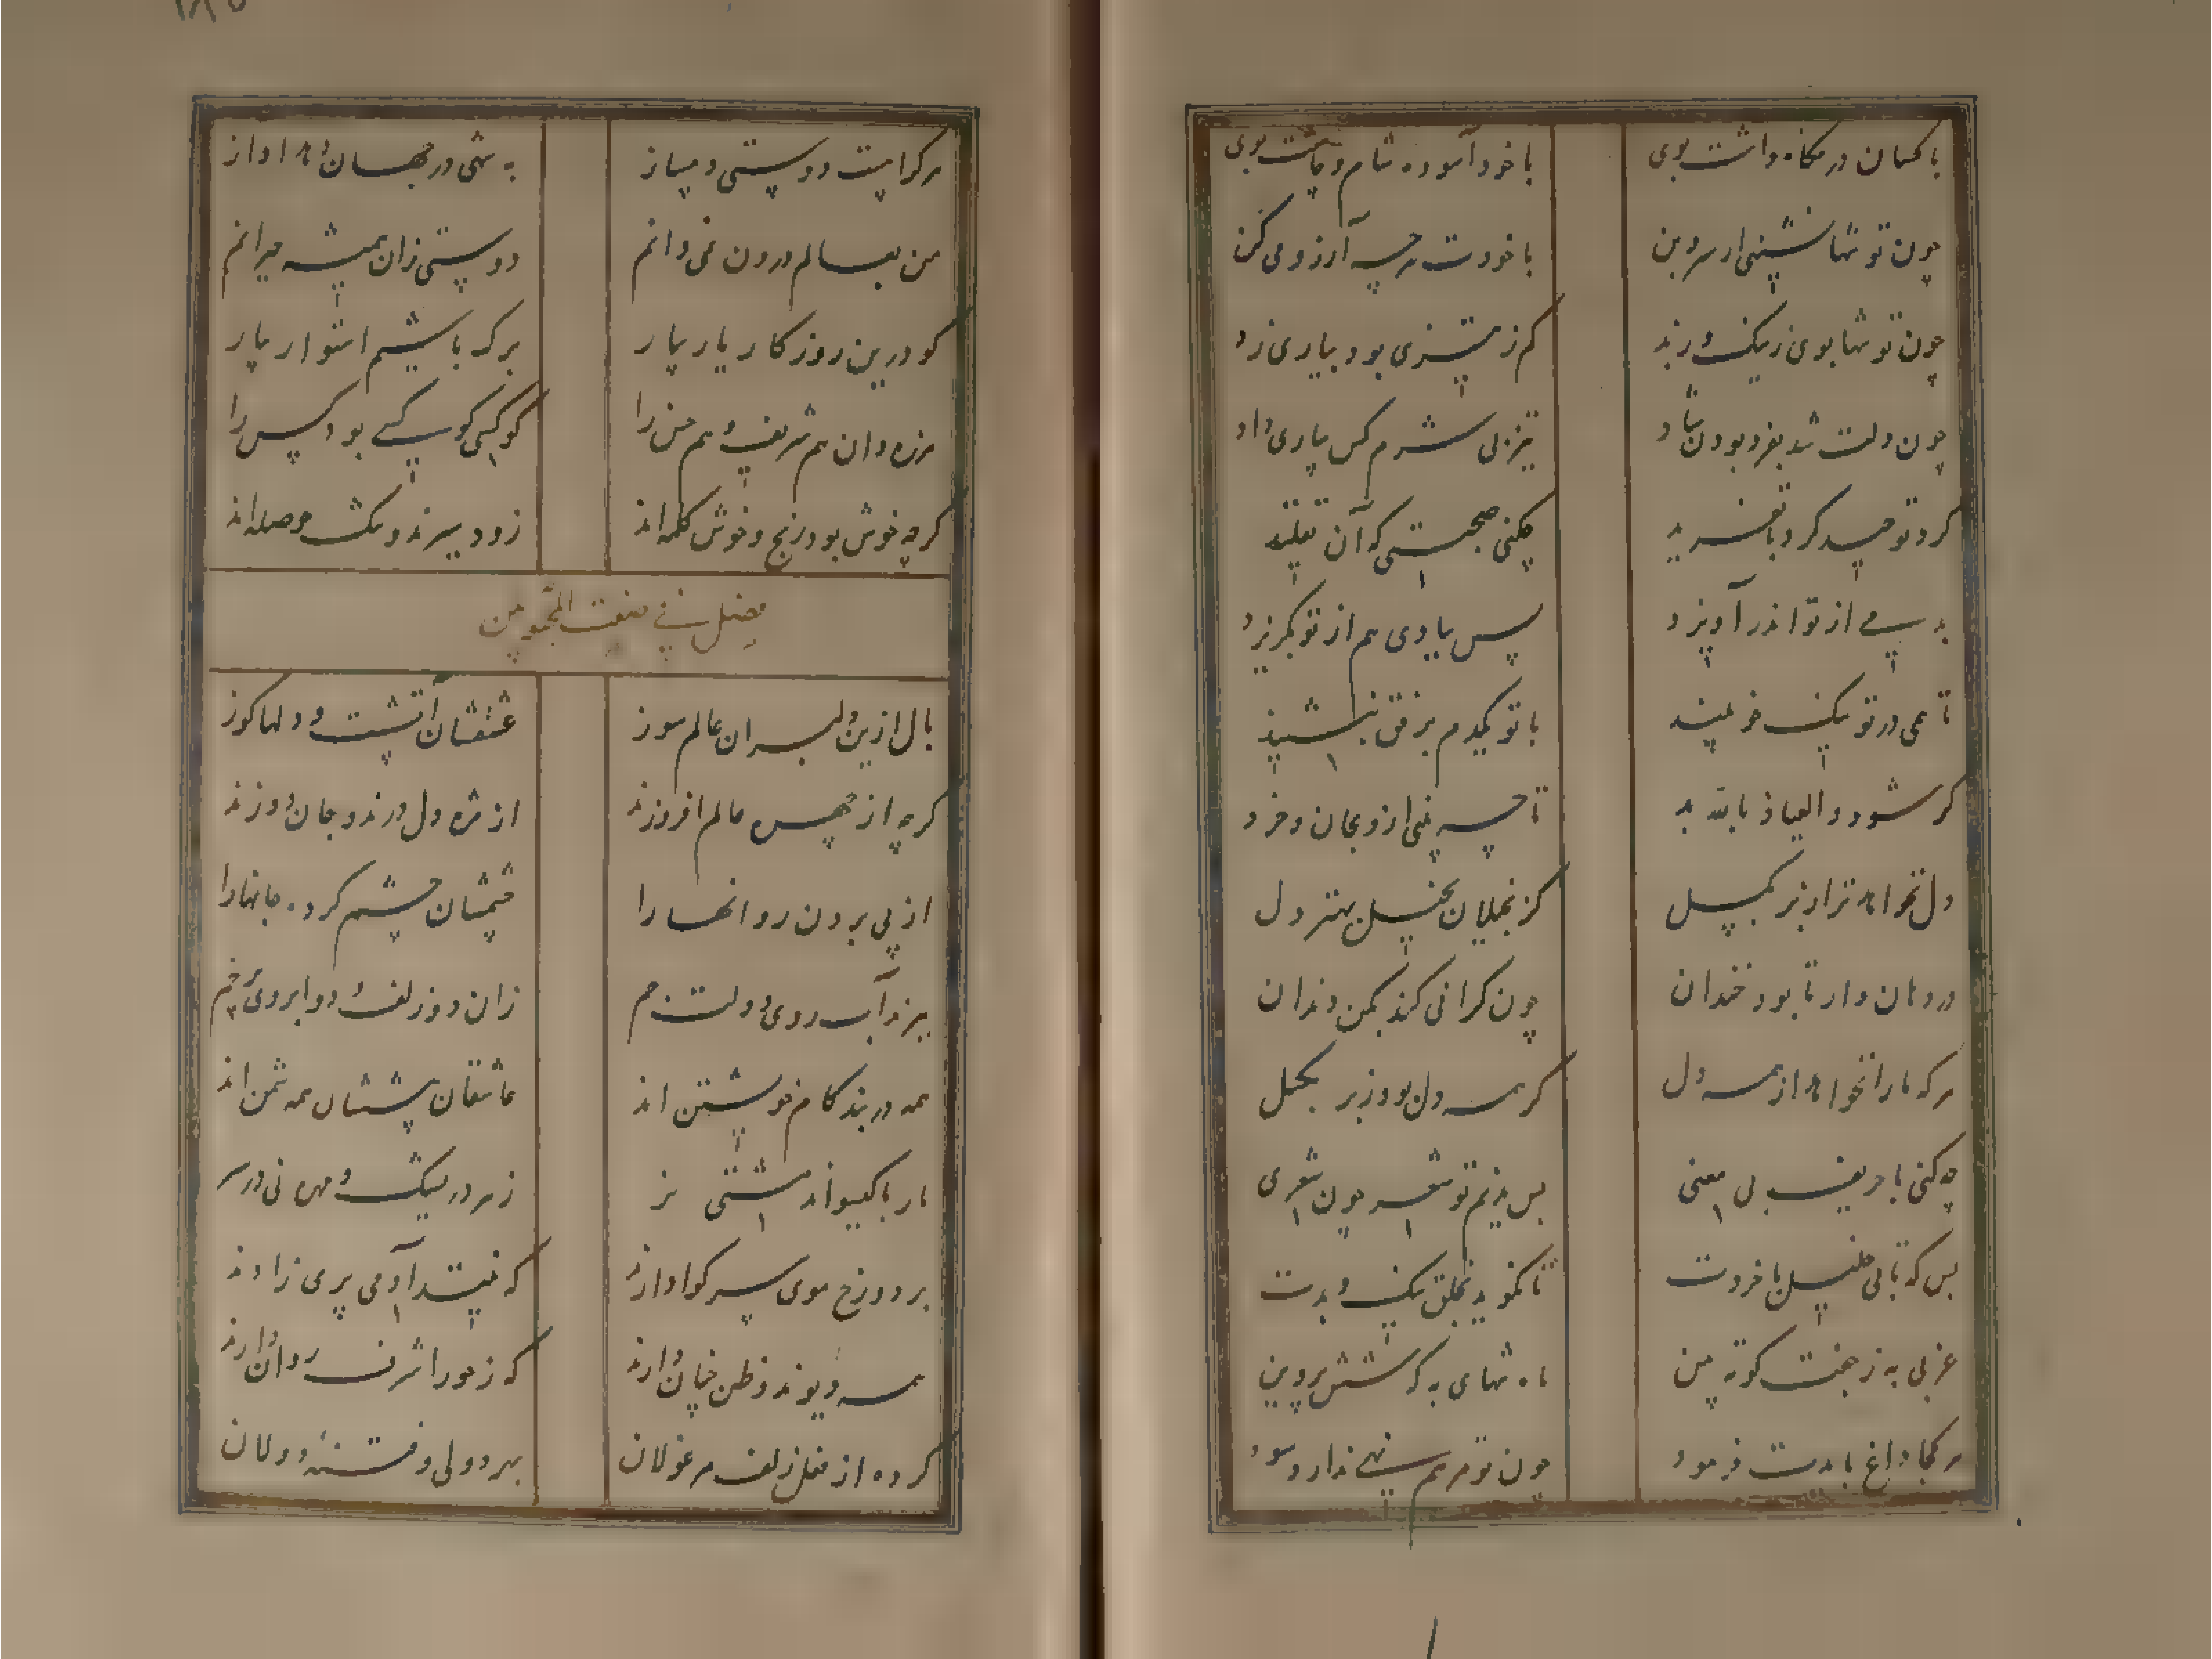 باکسان در مکاه داشت بوی
با خود آسوده شام و چاشت بوی
چون تو تنها نشینی از سر و بن
با خودت هر چه آرزو می کن
چون تو تنها بوی ز نیک و ز بد
کم ز شیری بود بیاری زد
چون دلت شد بفرد بودن شاد
تیزبی شرم کس یاری داد
کرد توحید کرد با تفرید
چکنی صحبتی که آن تقلید
بد پی از تو اندر آویزد
پس بیادی هم از تو بگریزد
تا همی در تو نیک خو بیند
با تو یکدم برفق بنشیند
کر شود والعیاذ بالله بد
تا چه بینی ازو بجان و خرد
دل نخواهد ترا ز بر بگسل
کز بخیلان بخیل بهتر دل
در دهان دار تا بود خندان
چون کرانی کند بکن دندان
هر که مار انخواهد از همه دل
کر همه دل بود ز بر بگسل
چه کنی با حریف بی معنی
بس ندیم تو شعر چون شعری
بس که تالی خلیل با خردت
تا نکوید بخلق نیک و بدت
عزبی به ز جفت کوته بین
ماه تنهای به که شش پروین
هر کجا داغ بایدت فرمود
چون تو مرهم نهی ندارد سود
هر کراهست دوستی دمساز
به شمی در جهان دهد آواز
من بعالم درون نمی دانم
دوستی زان همیشه حیرانم
کو درین روزکار یار بیار
بر که باشیم استوار بیار
مزه دان هم شریف و هم خس را
کو کسی کو کسی بود کس را
کرچه خوش بوذرنج و خوش کله اند
زود سیرند و تنک حوصله اند
فصل فی صفت المحبوبین
بال ازین دلبران عالم سوز
عشقشان آتشست و دلها کوز
کرچه از چهره عالم افروزند
از مژه دل درند و جان دوزند
از پی بردن روانها را
چشمشان چشم کرده جانها را
ببرند آب روی دولت جم
زان دو زلف و دو ابروی پر خم
همه در بند کام خویشتن اند
عاشقان پیششان همه شمن اند
مار با کیسو اند مشتی نر
زهر در نیک و مهره نی در سر
بر دو رخ موی سر کوا دارند
که نیند آدمی پری زادند
همه دیوند و ظن چنان دارند
که ز حورا شرف روان دارند
کرده از فعل زلف مرغولان
بهر دولی و فتنه دولان